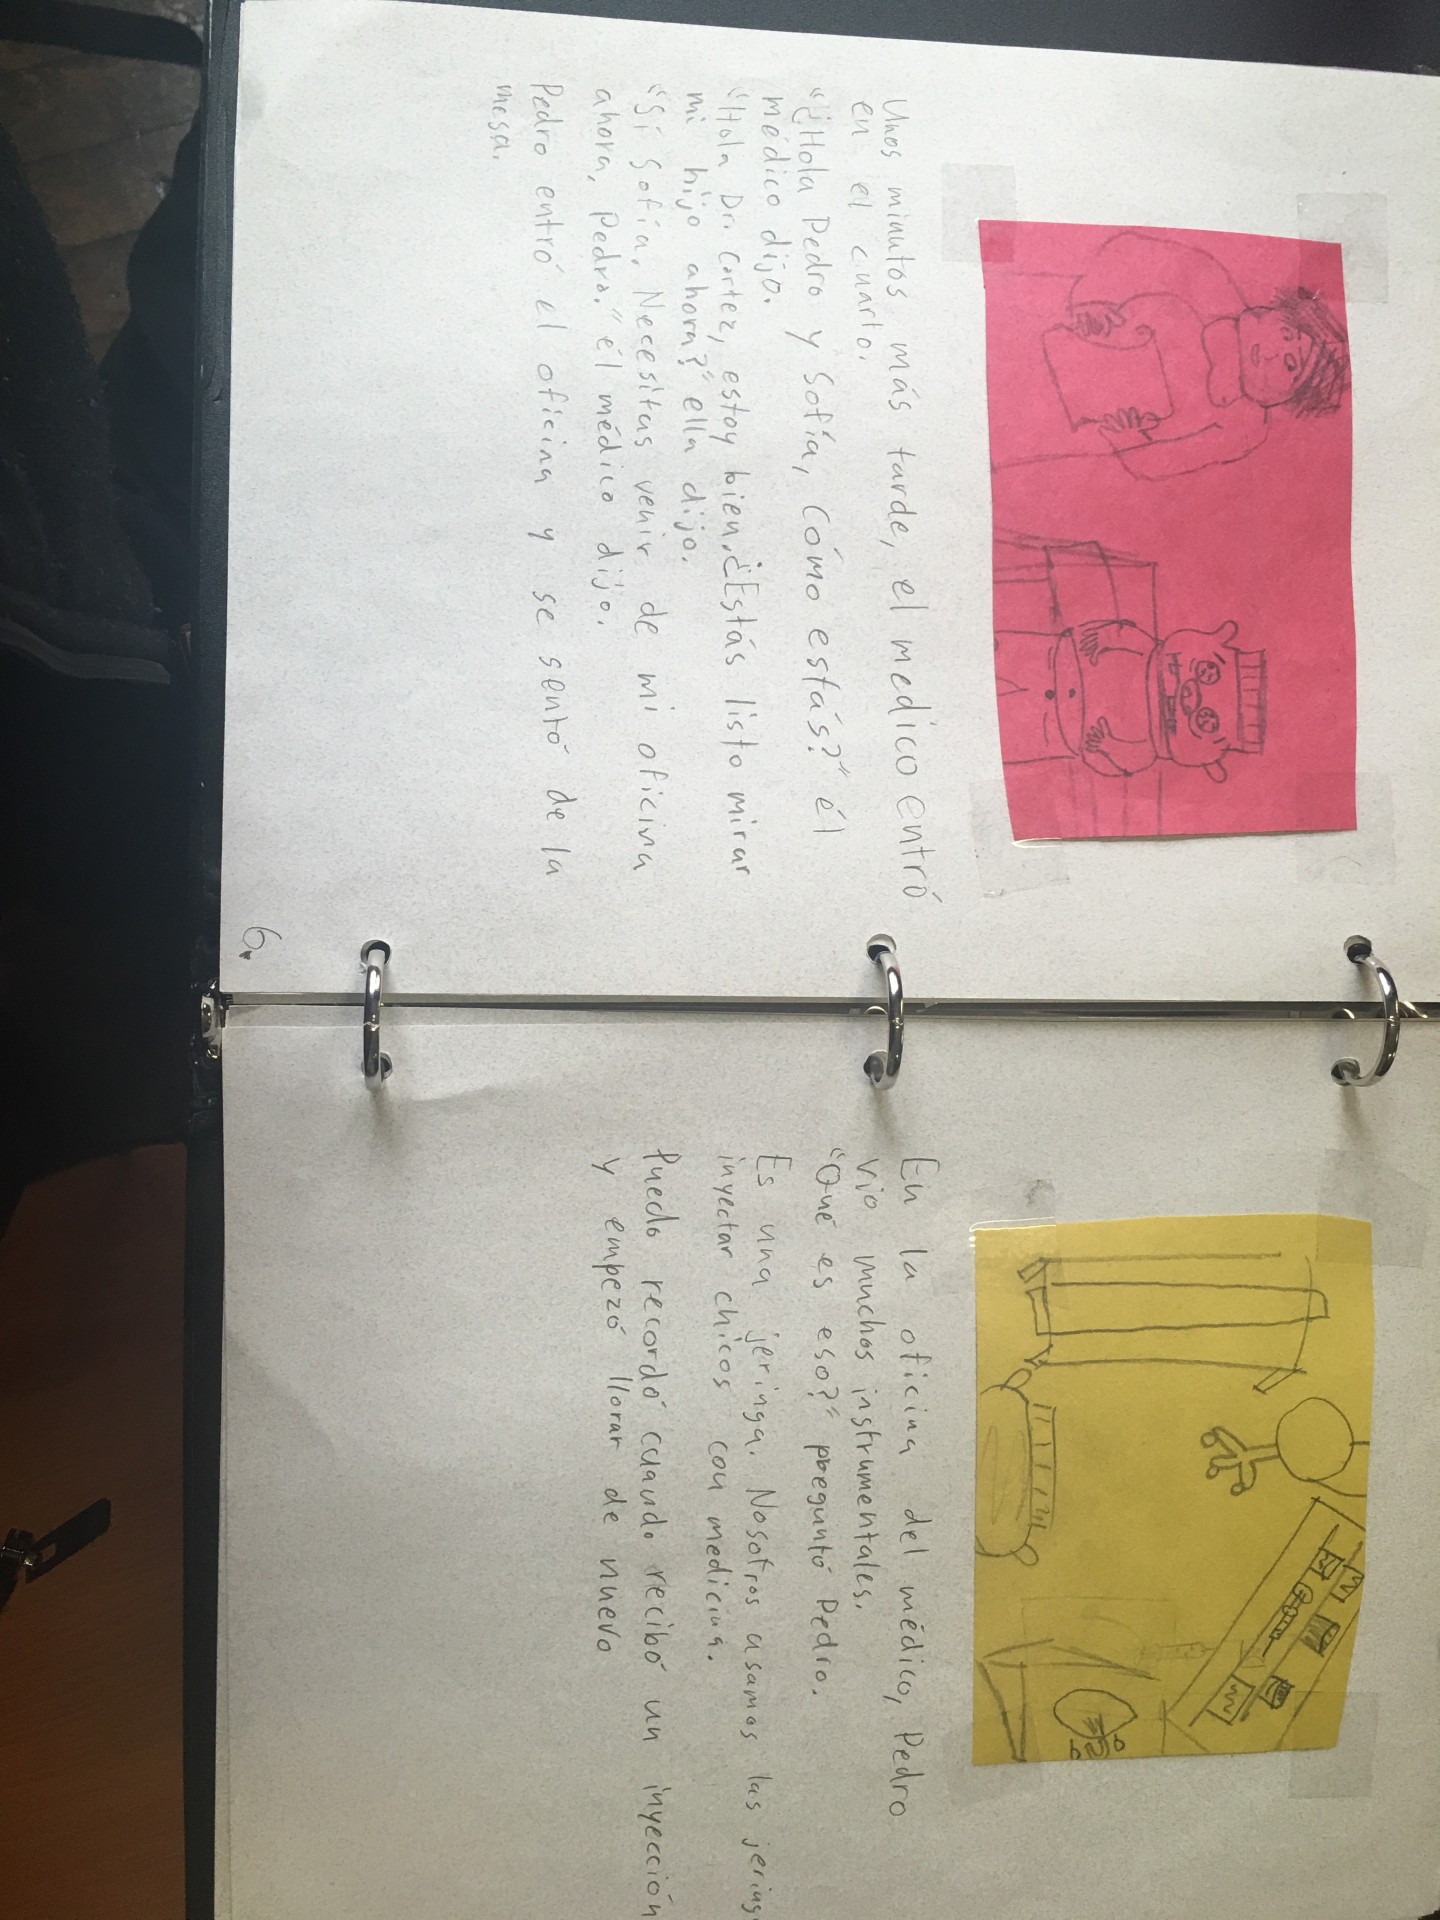 Unos minutos más tarde, el medico entró
en el cuarto.
"¡Hola Pedro y Sofía, Cómo estás?" él
médico dijo.
"Hola Dr. Cortez, estoy bien. ¿Estás listo mirar
mi hijo ahora?" ella dijo.
"Sí Sofía. Necesitas venir de mi oficina
ahora, Pedro." él médico dijo.
Pedro entró el oficina y se sentó de la
mesa.
6.
En la oficina del médico, Pedro
vio muchos instrumentales.
"Qué es eso?" preguntó Pedro.
Es una jeringa. Nosotros usamos las
inyectar chicos con medicina.
Puedo recordó cuando recibó un inyección
y empezó llorar de nuevo